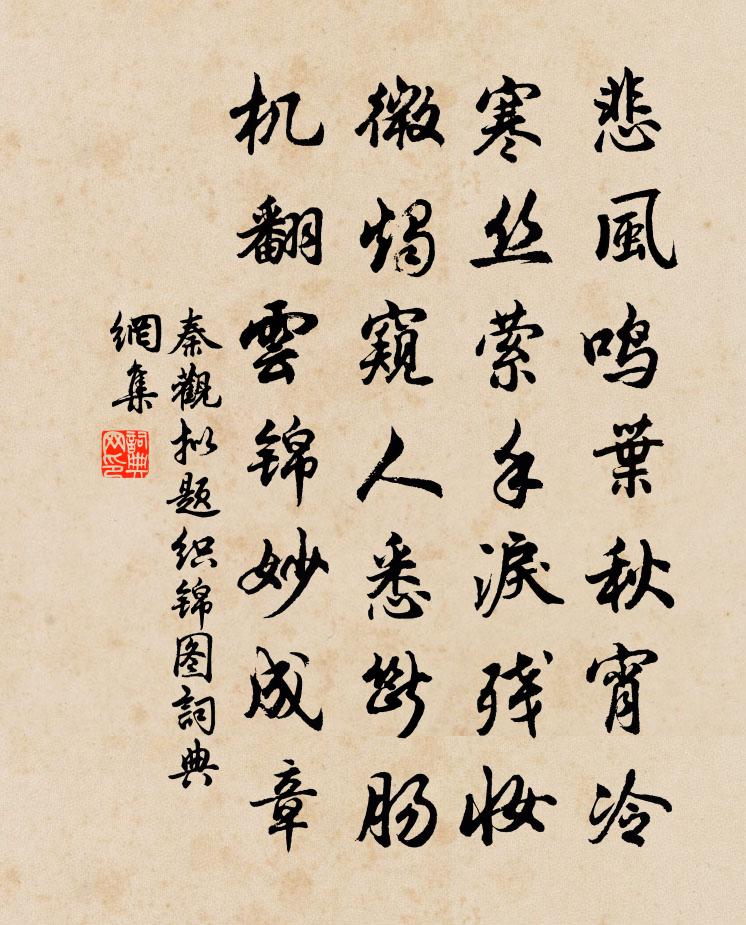 悲風鸣葉秋宵冷
寒丝萦手淚残妆
微烛窥人悉断肠
机翻雲锦妙成章
秦觀拟题织锦图詞典
網集
詞典
网印